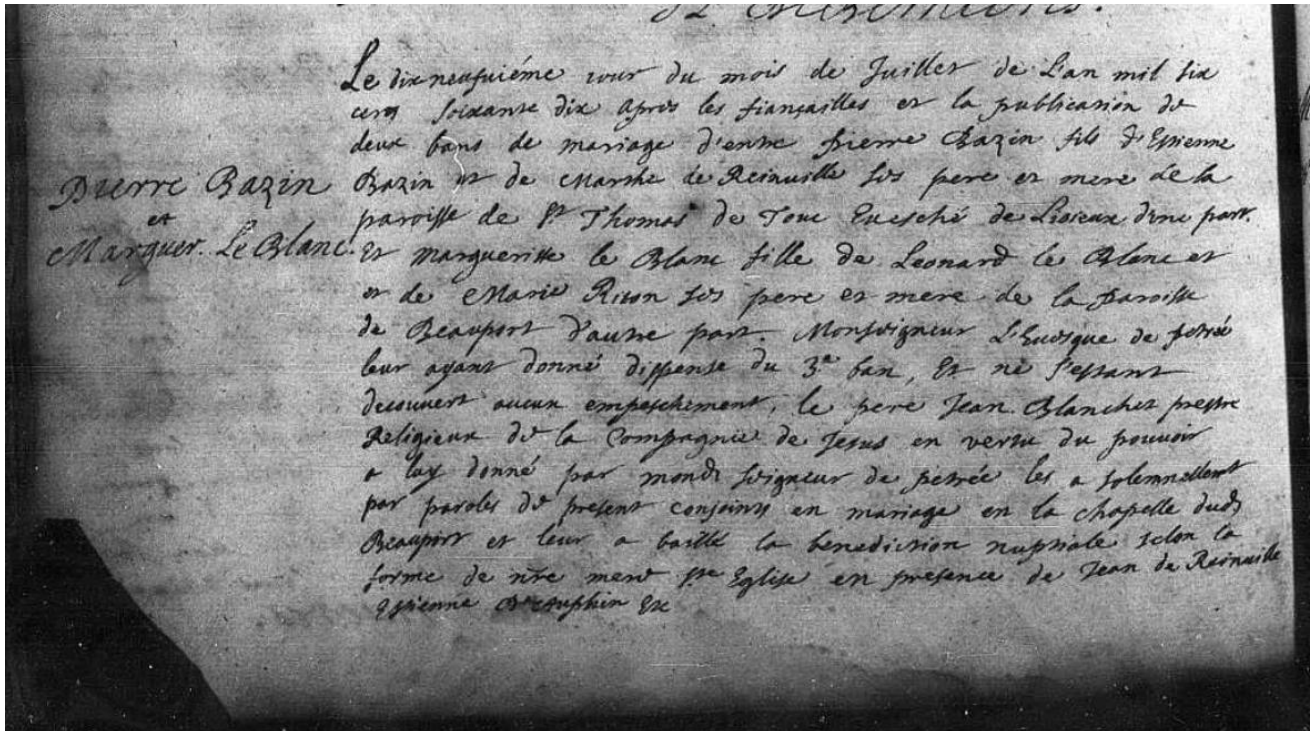 Pierre Bazin
et
Marguer. Le Blanc.
Le dix neufuiéme iour du mois de Juillet de L'an mil six
cens soixante dix apres les fiançailles et la publication de
deux bans de mariage d'entre pierre Bazin fils d'Estienne
Bazin et de Marthe de Reinuille ses pere et mere de la
paroisse de St Thomas de Touc Euesché de Lisieux d'une part.
Et margueritte le Blanc fille de Leonard le Blanc et
et de Marie Riton ses pere et mere de la paroisse
de Beauport d'autre part. Monseigneur L'Euesque de petrée
leur ayant donné dispense du 3.e ban, Et ne s'estant
decouvert aucun empeschement, le pere Jean Blanchet prestre
Religieux de la Compagnie de Jesus en vertu du pouvoir
a luy donné par mond. seigneur de petrée les a solemnellemt
par paroles de present conjoints en mariage en la chapelle dud.
Beauport et leur a baillé la benediction nuptiale selon la
forme de nre mere ste Eglise en presence de Jean de Reinuille
Estienne Dauphin Etc